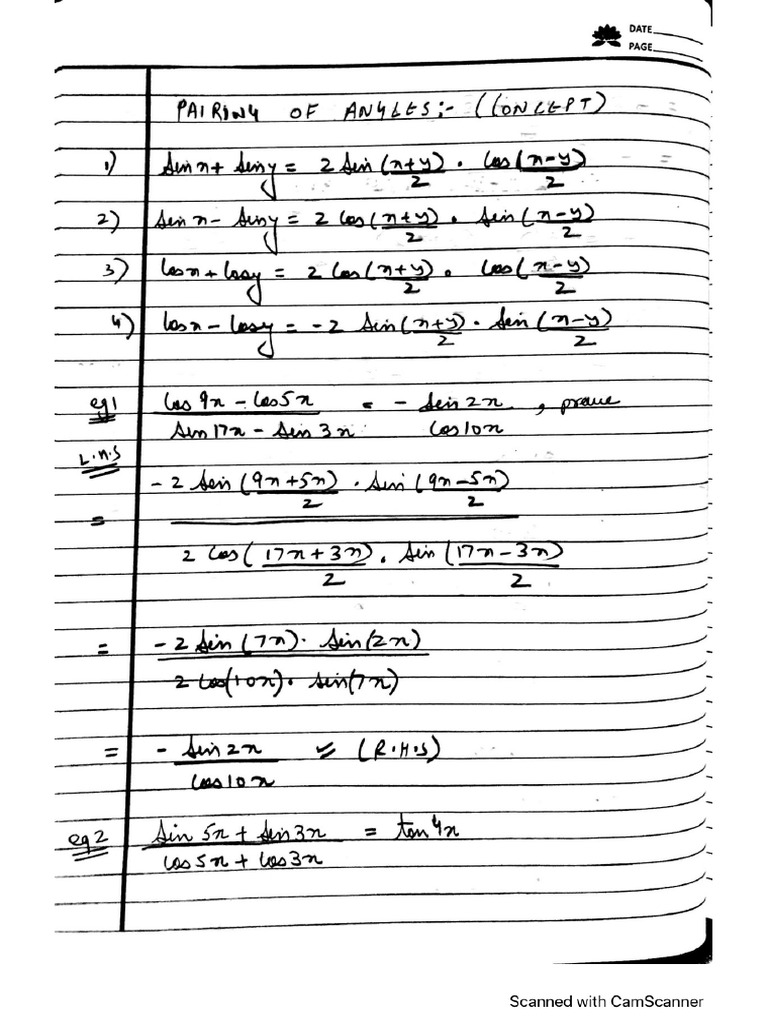 DATE
PAGE
PAIRING OF ANGLES:- (CONCEPT)
1) Sin x + Sin y = 2 Sin (x+y)/2 . Cos (x-y)/2
2) Sin x - Sin y = 2 Cos (x+y)/2 . Sin (x-y)/2
3) Cos x + Cos y = 2 Cos (x+y)/2 . Cos (x-y)/2
4) Cos x - Cos y = -2 Sin (x+y)/2 . Sin (x-y)/2
eg1 Cos 9x - Cos 5x / Sin 17x - Sin 3x = - Sin 2x / Cos 10x , prove
L.H.S
= -2 Sin (9x+5x)/2 . Sin (9x-5x)/2
2 Cos (17x+3x)/2 . Sin (17x-3x)/2
= -2 Sin (7x) . Sin (2x)
2 Cos (10x) . Sin (7x)
= - Sin 2x / Cos 10x (R.H.S)
eg2 Sin 5x + Sin 3x / Cos 5x + Cos 3x = tan 4x
Scanned with CamScanner